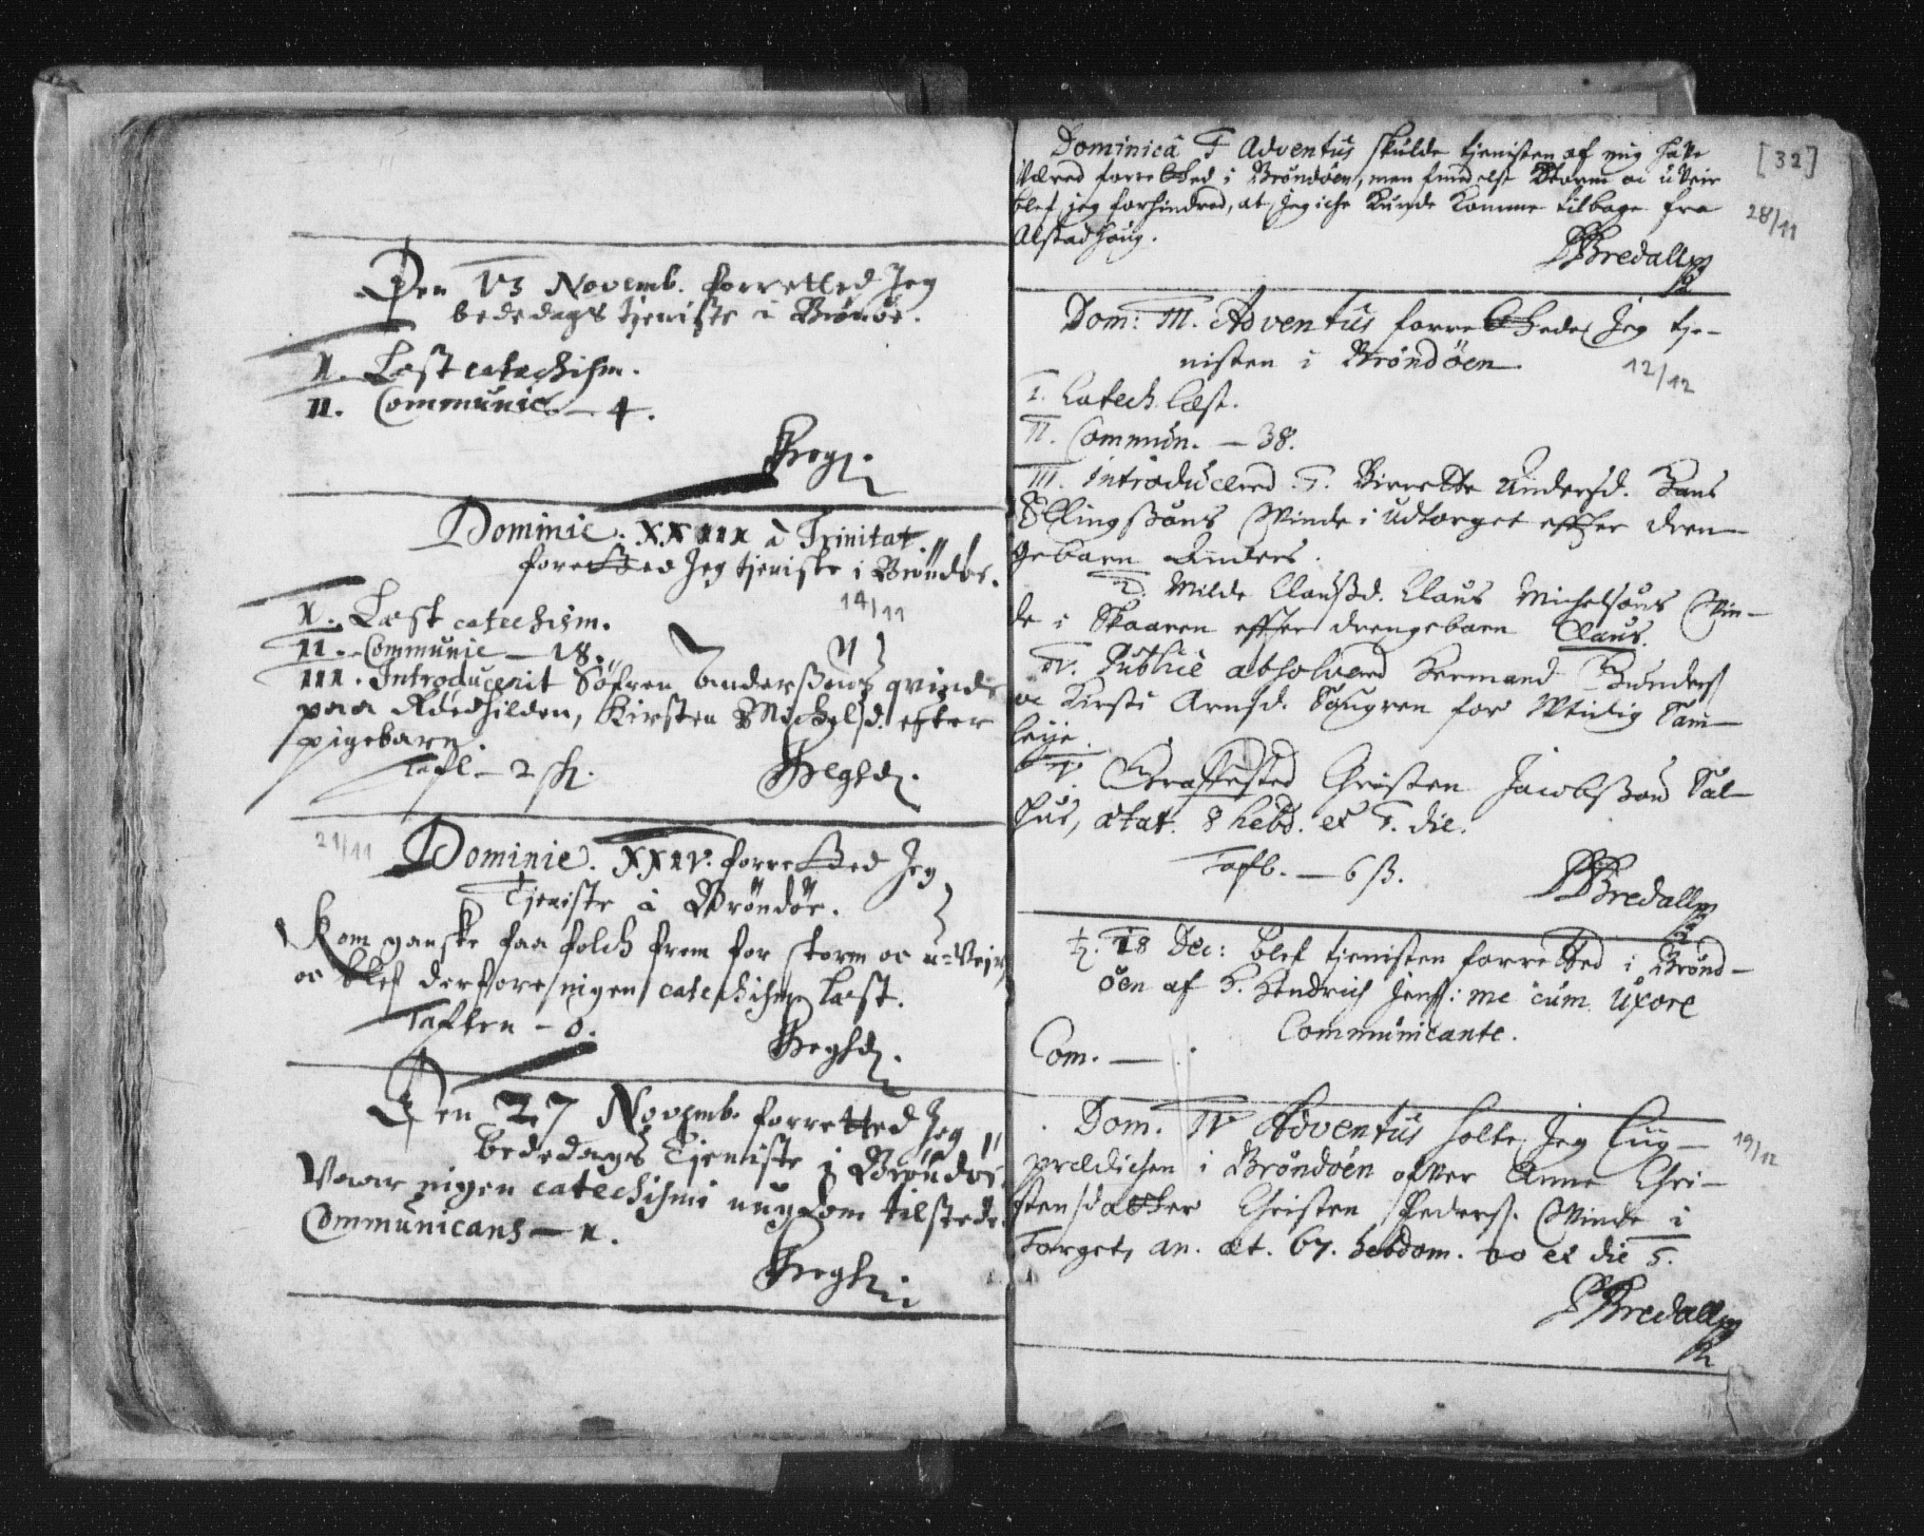 Den 13 Novemb. forretted Jeg
bededags tjeniste i Brönöe.
I. Læst catechism.
II. Communic. – 4.
Dominic. XXIII à Trinitat.
forretted Jeg tjeniste i Bröndöe.
14/11
I. Læst catechism.
II. Communic – 18.
III. Introducerit Söfren Anderssöns qvinde
paa Rödhilden, Kirsten Michelsd. efter
pigebarn.
Tafl – 2 sk.
21/11
Dominic. XXIV. forretted Jeg
Tjeniste i Bröndöe.
Kom ganske faa folck frem for storm oc u-Veir,
oc blef derfore ingen catechism læst.
Taflen – 0.
Den 27 Novemb. forretted Jeg
bededags Tjeniste i Bröndöe
Vaar ingen catechismi ungdom tilstede.
Communicans – 1.
[32]
Dominicâ I Adventûs skulde tjenisten af mig hafve
Været forretthed i Bröndöen, men formedelst Storm oc uVeir
blef jeg forhindred, at Jeg iche kunde komme tilbage fra
Alstadhoug.
28/11
Bredall
Dom: III. Adventûs forretthede Jeg tje-
nisten i Bröndöen
12/12
I. Catech. læst.
II. Commun. – 38.
III. Introducered. 1. Birrette Andersd. Hans
Ellingssöns Qvinde i Udtorget effter dren-
gebarn Anders.
2. Milde Clausd. Claus Michelsöns Qvin-
de i Skaaren effter drengebarn Claus.
IV. Publicè absolvered Hermand
oc Kirsti Arnsd. for Utidig Sam-
leije.
V. Graffested Christen Jacobssön Sal-
hus, ætat. 8 hebd. et 1. die.
Tafl. – 6 ß.
Bredall
18 Dec: blef tjenisten forretted i Brönd-
öen af H. Hendrich Jenss: me cum Uxore
Communicante.
Com. –
Dom. IV Adventûs holte Jeg Liig-
prædichen i Bröndöen ofver Anne Chri-
stensdatter Christen Pederss. Qvinde i
Torget, an. æt. 67. hebdom. 20 et die 5.
19/12
Bredall